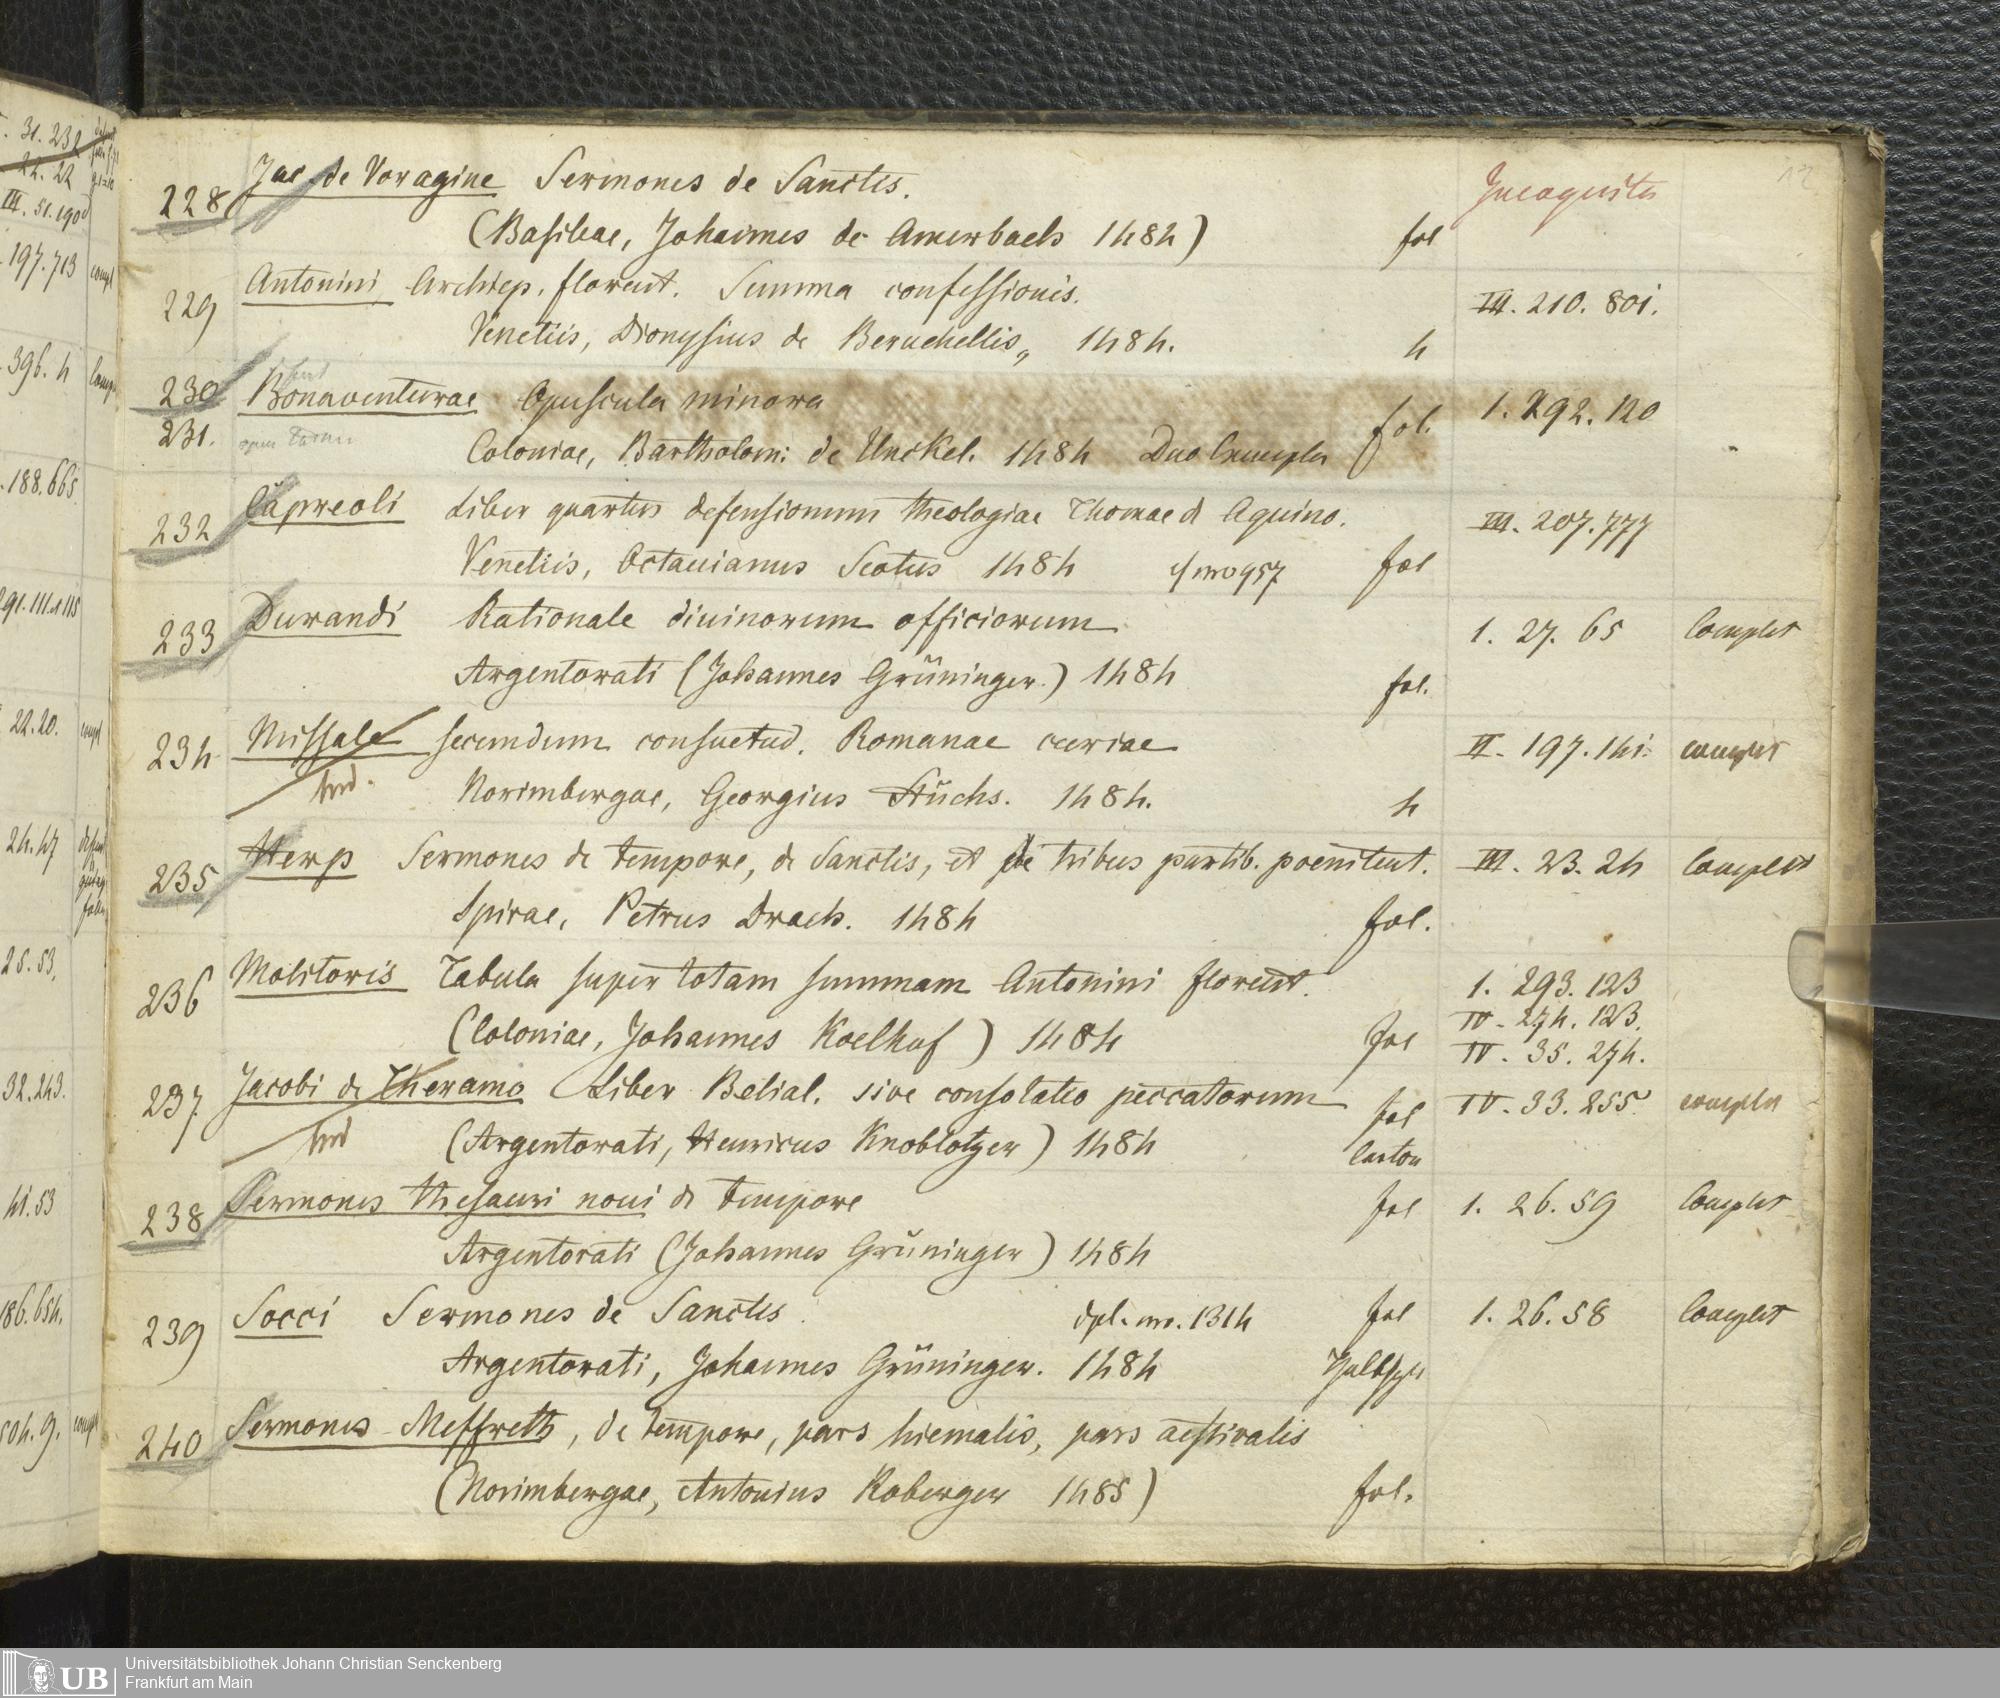 31. 232
22. 22
III. 51. 190
197. 713
396. 4
188. 665
91. 111. 115
22. 20.
24. 47
25. 53.
32. 243.
41. 53
186. 654.
504. 9.
12
228 Jac. de Voragine Sermones de Sanctis.
Incognita
(Basileae, Johannes de Amerbach 1484) fol
229 Antonini Archiep. florent. Summa confessionis.
III. 210. 801.
Venetiis, Dionysius de Beruchellis, 1484. 4
230 Bonaventurae Opuscula minora
1. 292. 120
231. Coloniae, Bartholom: de Unckel. 1484 Duo Exempla fol.
232 Capreoli Liber quartus defensionum theologiae Thomae d Aquino.
III. 207. 777
Venetiis, Octavianus Scotus 1484 cf nro 957 fol
233 Durandi Rationale divinorum officiorum
1. 27. 65 Complet
Argentorati (Johannes Grüninger.) 1484 fol.
234 Missale secundum consuetud. Romanae curiae
II. 197. 141. complet
Norimbergae, Georgius Stüchs. 1484. 4
235 Herp Sermones de tempore, de Sanctis, et de tribus partib. poenitent.
III. 23. 24 Complet
Spirae, Petrus Drach. 1484 fol.
236 Molitoris Tabula super totam summam Antonini florent.
1. 293. 123
IV. 274. 123.
(Coloniae, Johannes Koelhof) 1484 fol
IV. 35. 274.
237 Jacobi de Theramo Liber Belial. sive consolatio peccatorum fol
IV. 33. 255. complet
(Argentorati, Henricus Knoblotzer) 1484 Carton
238 Sermones thesauri novi de tempore fol
1. 26. 59 Complet
Argentorati (Johannes Grüninger) 1484
239 Socci Sermones de Sanctis. dpl. nro. 1314 fol
1. 26. 58 Complet
Argentorati, Johannes Grüninger. 1484
240 Sermones Meffreth, de tempore, pars hiemalis, pars aestivalis
(Norimbergae, Antonius Koberger 1485) fol.
UB
Universitätsbibliothek Johann Christian Senckenberg
Frankfurt am Main